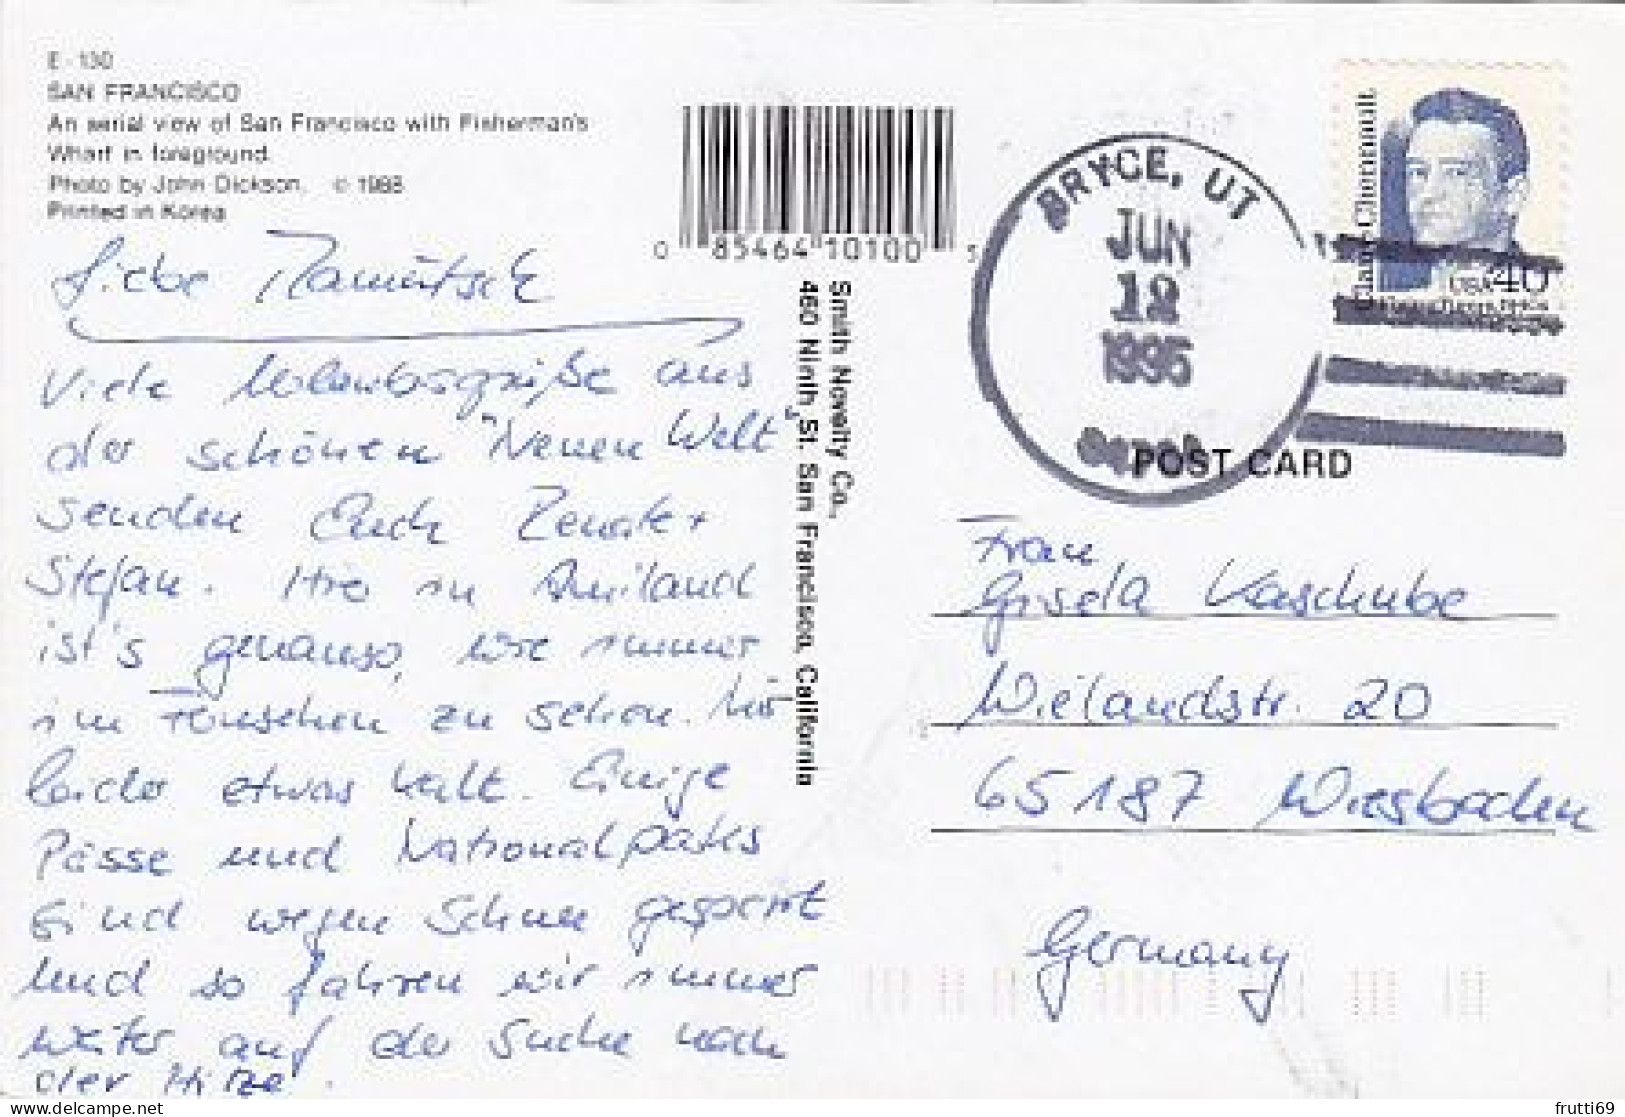 E - 130
SAN FRANCISCO
An aerial view of San Francisco with Fisherman's
Wharf in foreground.
Photo by John Dickson. © 1988
Printed in Korea
0 85464 10100 5
Smith Novelty Co.,
460 Ninth St. San Francisco, California
BRYCE, UT
JUN
12
1995
Claire Chennault
USA 40
POST CARD
Liebe
Viele Urlaubsgrüße aus
der schönen "Neuen Welt"
senden Euch Renate +
Stefan. Hier in Amiland
ist's genauso, wie immer
im Fernsehen zu sehen. Nur
leider etwas kalt. Einige
Pässe und Nationalparks
sind wegen Schnee gesperrt
und so fahren wir immer
weiter, auf der Suche nach
der Hitze.
Frau
Gisela Kaschube
Wielandstr. 20
65187 Wiesbaden
Germany
delcampe.net
frutti69